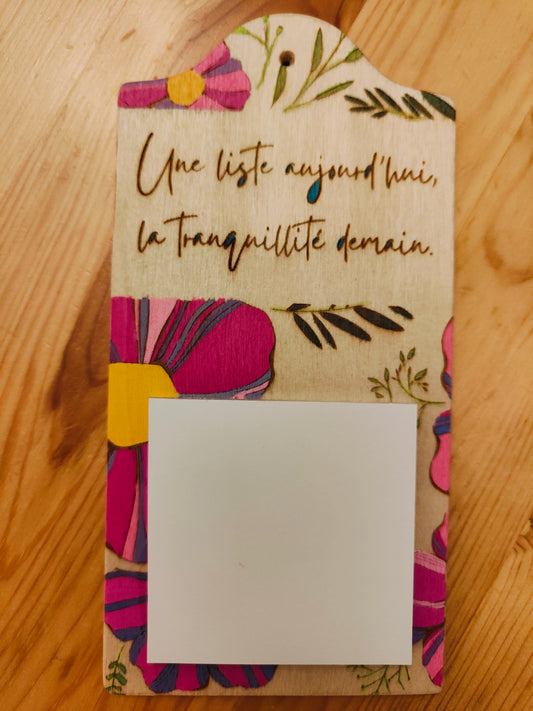 Une liste aujourd'hui,
la tranquillité demain.